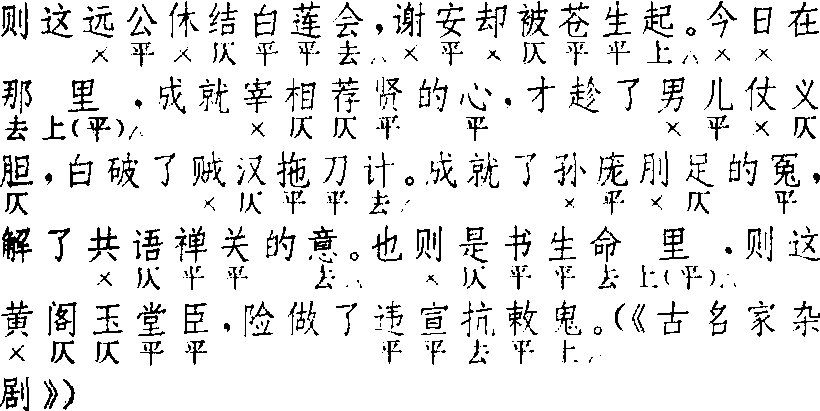 则这远公休结白莲会，谢安却被苍生起。今日在
× 平 × 仄 平 平 去△ × 平 × 仄 平 平 上△ × ×
那里，成就宰相荐贤的心，才趁了男儿仗义
去 上(平)△ × 仄 仄 平 平 × 平 × 仄
胆，白破了贼汉拖刀计。成就了孙庞刖足的冤，
仄 × 仄 平 平 去△ × 平 × 仄 平
解了共语禅关的意。也则是书生命里，则这
× 仄 平 平 去△ × 仄 平 平 去 上(平)△
黄阁玉堂臣，险做了违宣抗敕鬼。(《古名家杂
× 仄 仄 平 平 平 平 去 平 上△
剧》)